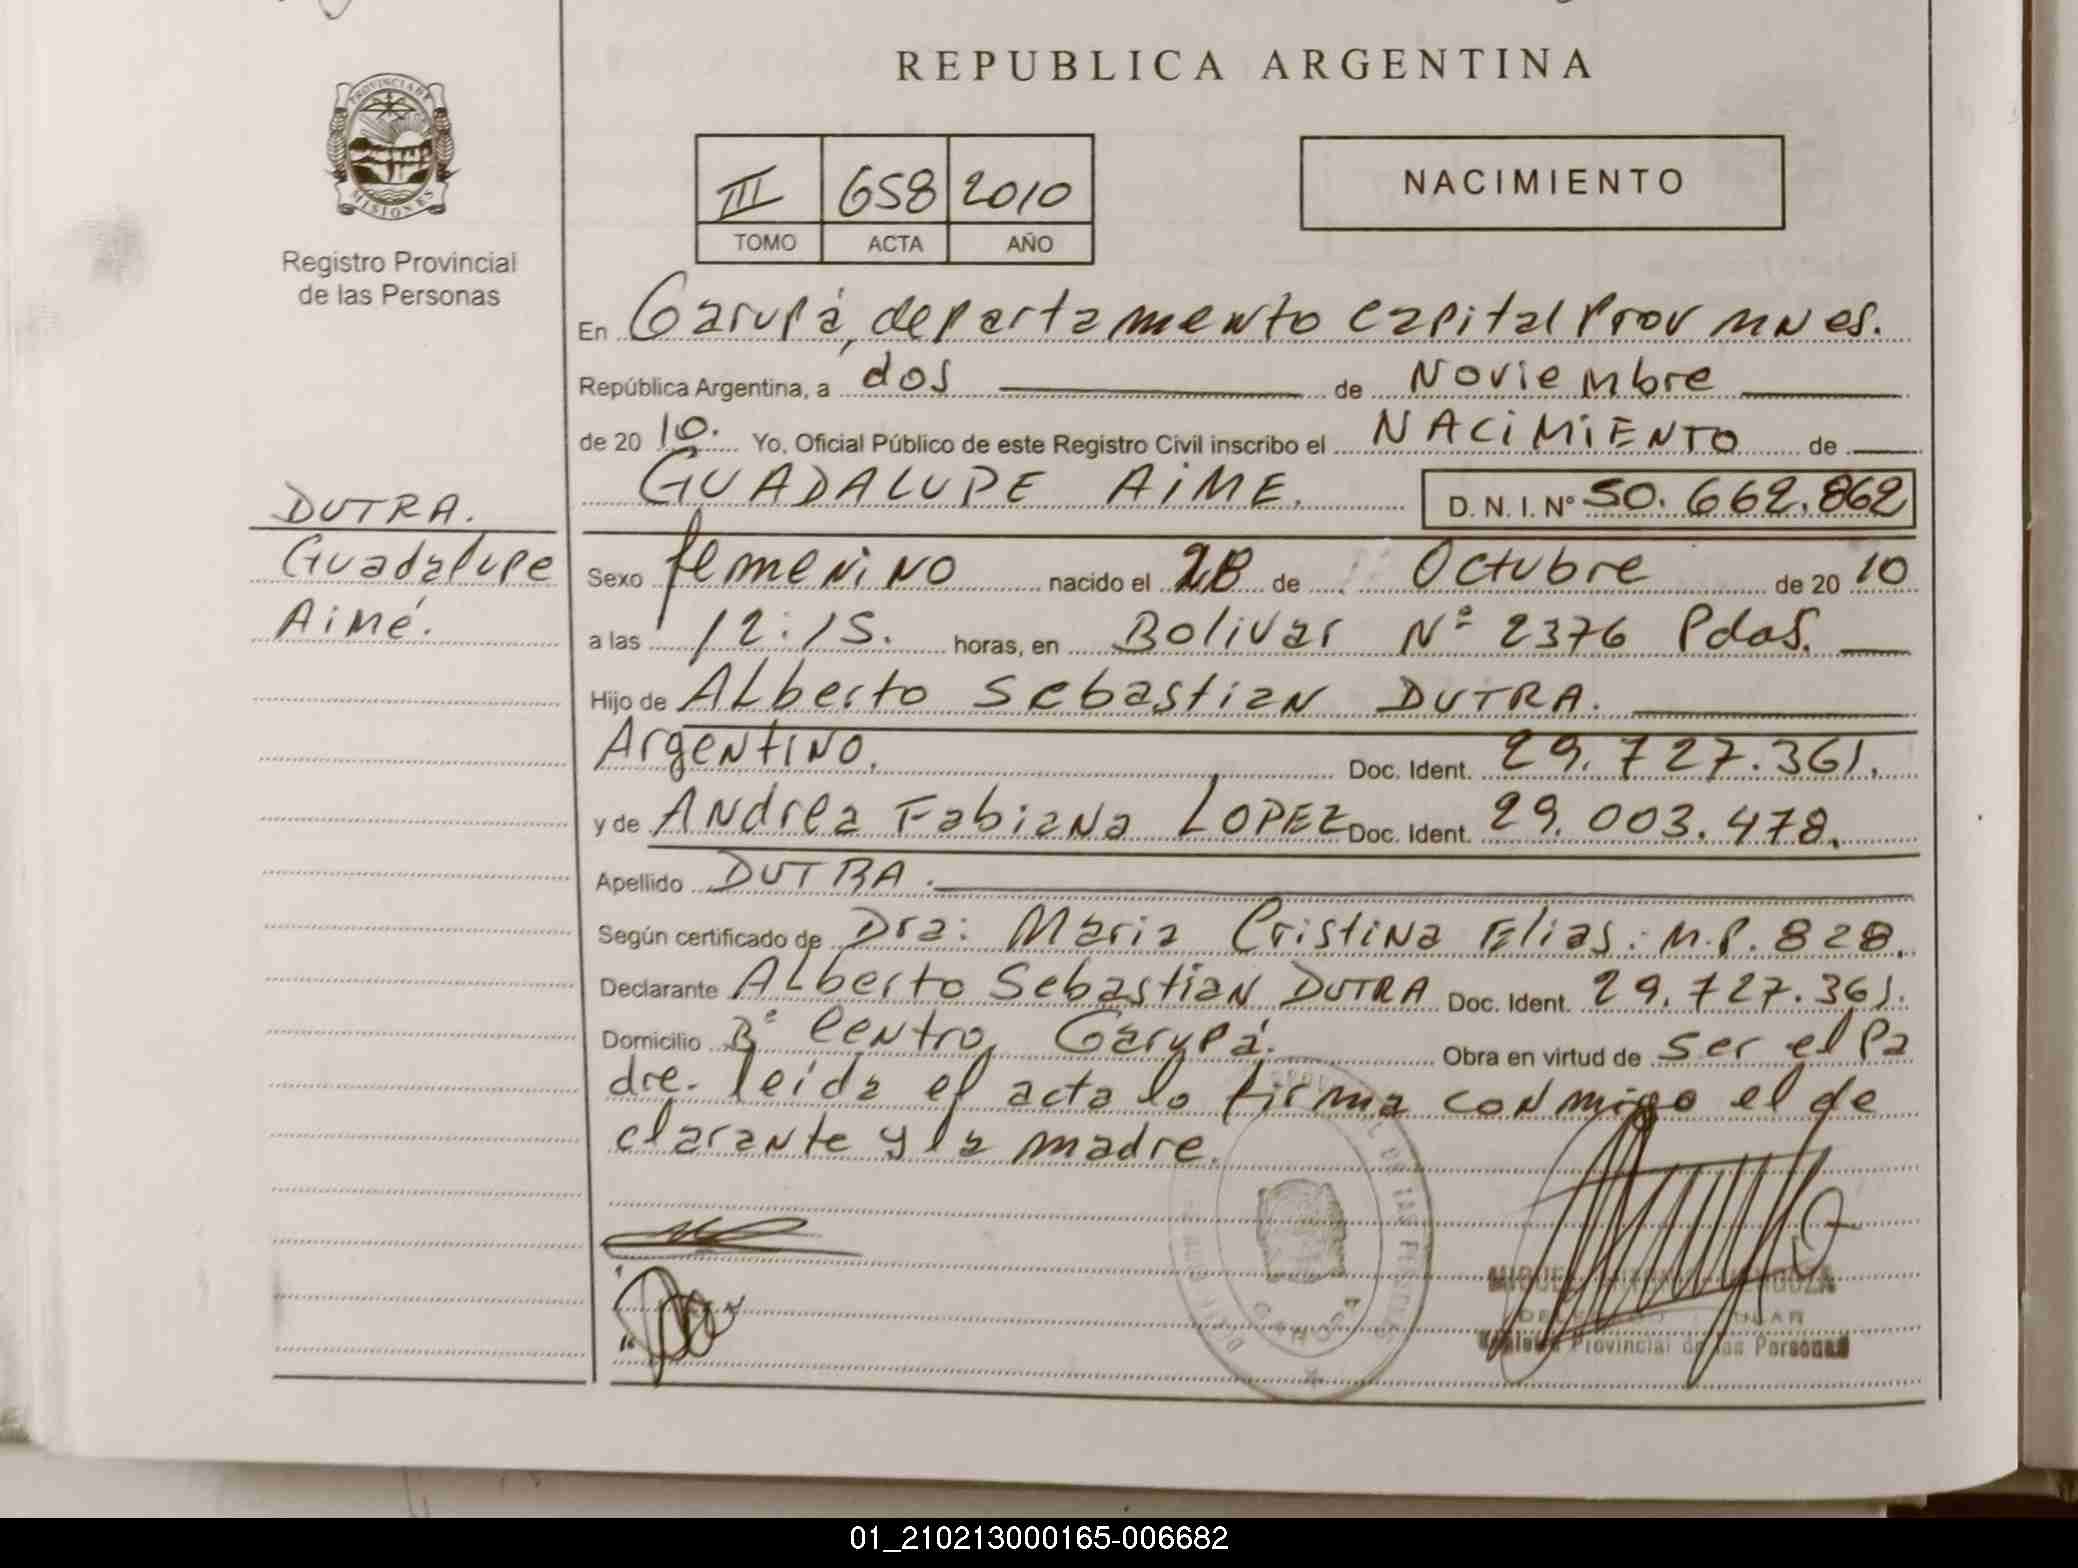 REPUBLICA ARGENTINA
PROVINCIA DE
MISIONES
Registro Provincial
de las Personas
III 658 2010
TOMO ACTA AÑO
NACIMIENTO
En Garupá, departamento Capital Prov Mnes.
República Argentina, a dos de Noviembre
de 2010. Yo, Oficial Público de este Registro Civil inscribo el NACIMIENTO de
GUADALUPE AIME. D. N. I. Nº 50.662.862
DUTRA.
Guadalupe
Aimé.
Sexo femenino nacido el 28 de Octubre de 2010
a las 12:15. horas, en Bolivar Nº 2376 Pdas.
Hijo de Alberto Sebastian DUTRA.
Argentino. Doc. Ident. 29.727.361.
y de Andrea Fabiana LOPEZ Doc. Ident. 29.003.478.
Apellido DUTRA.
Según certificado de Dra: Maria Cristina Elias. M.P. 828.
Declarante Alberto Sebastian DUTRA Doc. Ident. 29.727.361.
Domicilio Bº Centro, Garupá. Obra en virtud de ser el Pa
dre. leida el acta lo firma conmigo el de
clarante y la madre.
Provincial de las Personas
01_210213000165-006682